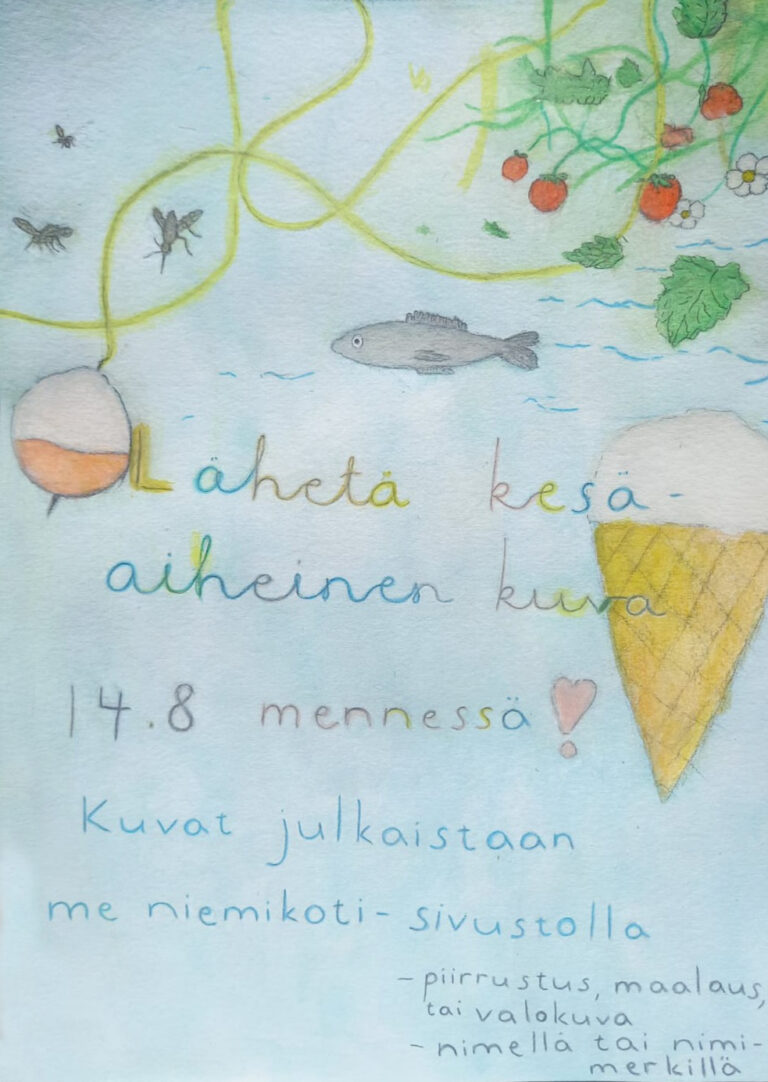 Lähetä kesä-
aiheinen kuva
14.8 mennessä!
Kuvat julkaistaan
me niemikoti-sivustolla
-piirrustus, maalaus,
tai valokuva
-nimellä tai nimi-
merkillä